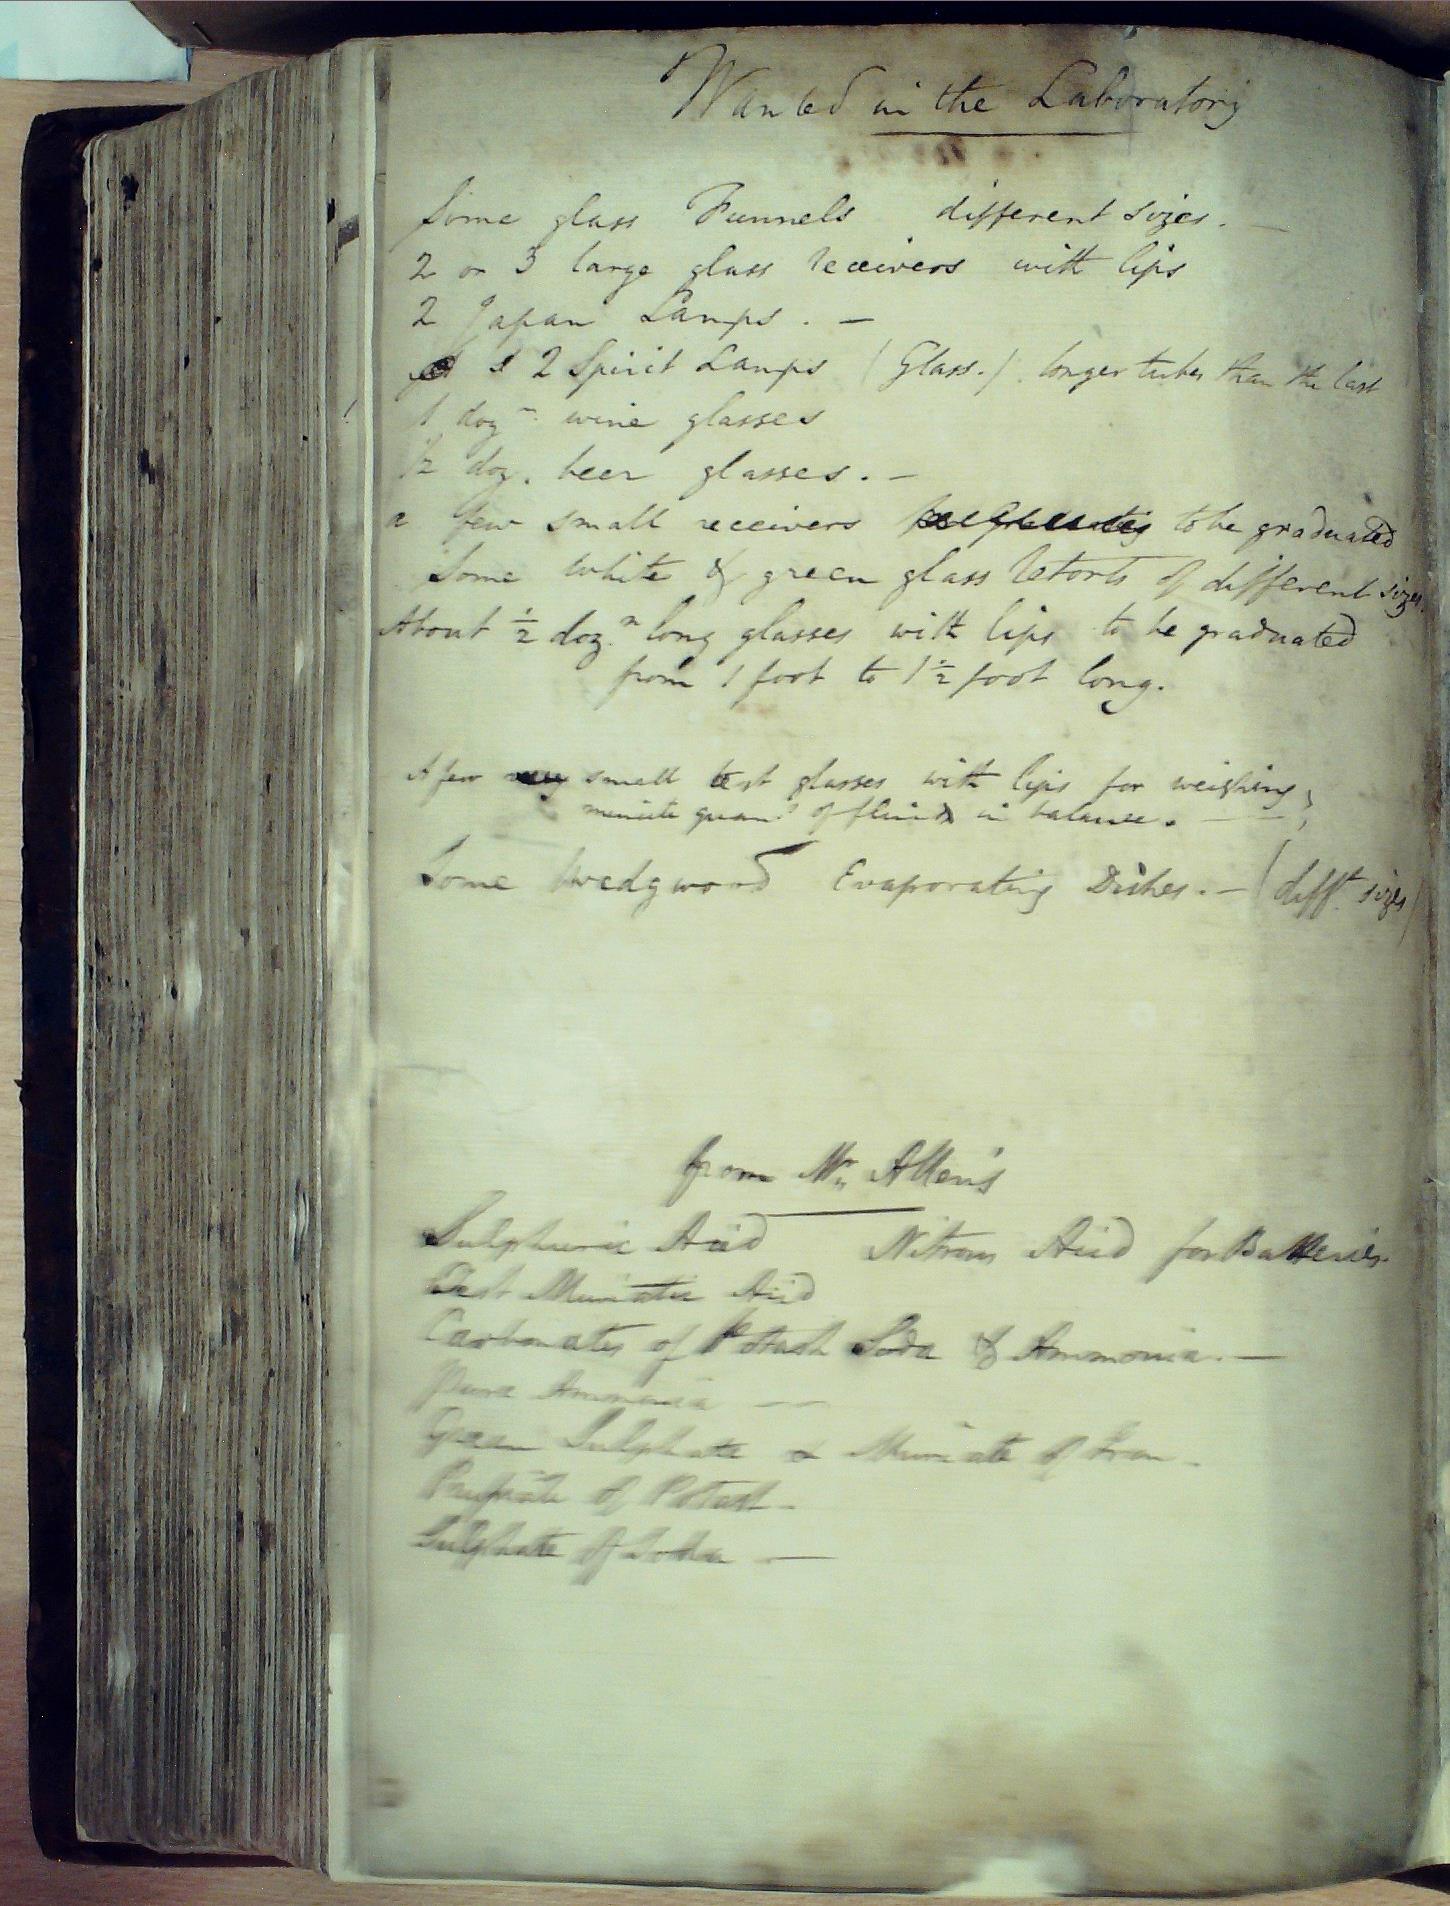 Wanted in the Laboratory
Some glass Funnels different sizes. —
2 or 3 large glass receivers with lips
2 Japan Lamps. —
2 Spirit Lamps (Glass.) longer tubes than the last
1 dozn wine glasses
1/2 doz. beer glasses. —
a few small receivers to be graduated
Some white & green glass retorts of different sizes.
About ½ dozn long glasses with lips to be graduated
from 1 foot to 1½ foot long.
A few small test glasses with lips for weighing
minute quans of fluids in balance. —
Some Wedgwood Evaporating Dishes. — (difft sizes)
from Mr Allen's
Sulphuric Acid Nitrous Acid for Batteries.
Best Muriatic Acid
Carbonates of Potash Soda & Ammonia. —
Pure Ammonia —
Green Sulphate & Muriate of Iron -
Prussiate of Potash -
Sulphate of Soda —